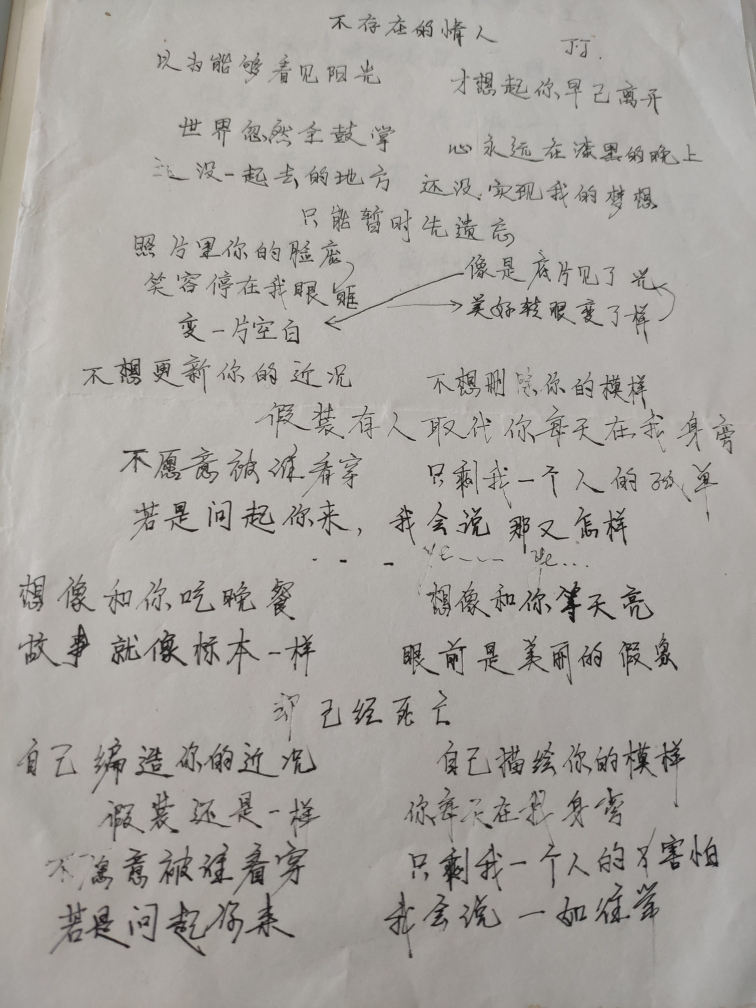 不存在的情人
JJ.
以为能够看见阳光 才想起你早已离开
世界忽然全鼓掌 心永远在漆黑的晚上
没一起去的地方 还没实现我的梦想
只能暂时先遗忘
照片里你的脸庞 像是底片见了光
笑容停在我眼眶 美好转眼变了样
变一片空白
不想更新你的近况 不想删除你的模样
假装有人取代你每天在我身旁
不愿意被谁看穿 只剩我一个人的孤单
若是问起你来，我会说 那又怎样
- - - ye--- ye...
想像和你吃晚餐 想像和你等天亮
故事就像标本一样 眼前是美丽的假象
却已经死亡
自己编造你的近况 自己描绘你的模样
假装还是一样 你每天在我身旁
不愿意被谁看穿 只剩我一个人的 害怕
若是问起你来 我会说 一如往常